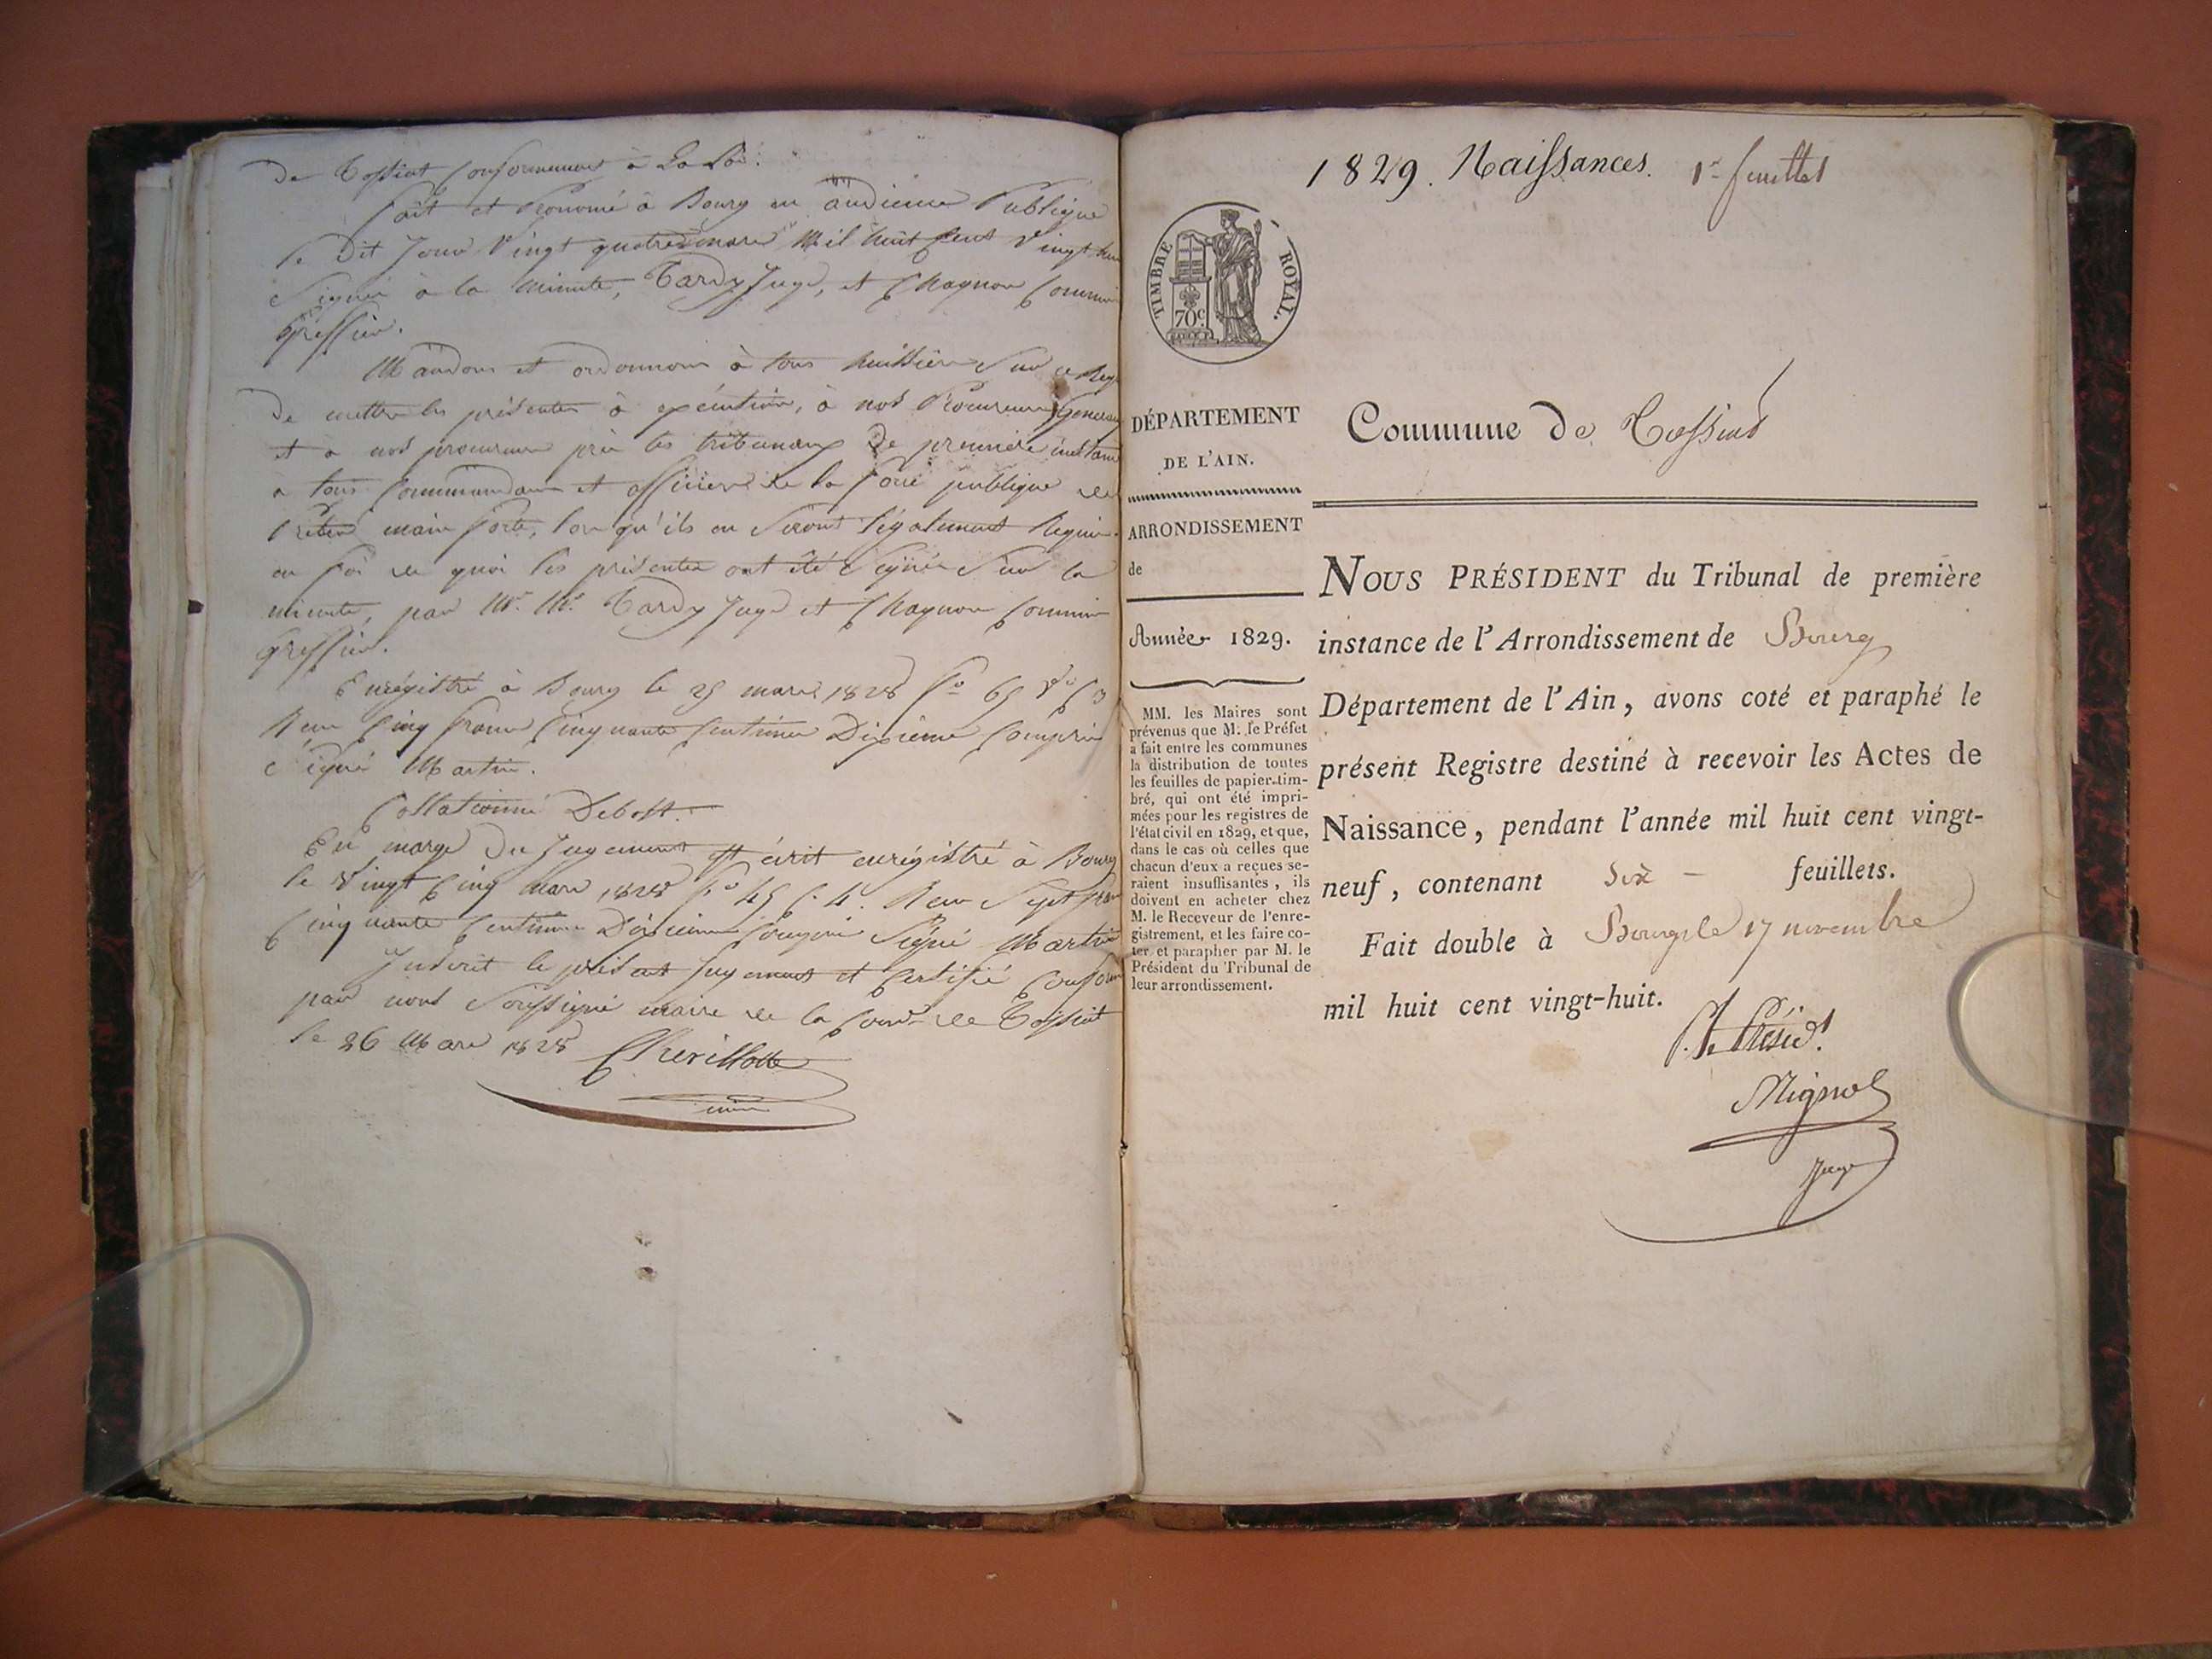 de Tossiat Conformement à La Loi.
fait et Prononcé à Bourg en audience Publique
le Dit Jour Vingt quatre mars Mil huit Cent Vingt huit
Signé à la minute, Tardy Juge, et Chagnon Commis
Greffier.
Mandons et ordonnons à tous huissiers Sur ce Requis
De mettre les présentes à exécution, à nos Procureurs Généraux
et à nos procureurs près les tribunaux De première instance
a tous Commandans et officiers de la force publique de
Prêter main forte, lorsqu'ils en Seront légalement Requis.
en foi de quoi les présentes ont été Signées Sur la
minute, par Mrs. Tardy Juge et Chagnon Commis
Greffier.
Enrégistré à Bourg le 25 mars 1828 fo 65 Vo C 3
Reçu Cinq francs Cinquante Centimes Dixième Compris
Signé Martin.
Collationné Debost.
En marge Du Jugement est écrit enrégistré à Bourg
le Vingt Cinq mars 1828 fo 45 C. 4. Reçu Sept francs
Cinquante Centimes Dixième Compris Signé Martin
Inscrit le présent Jugement et Certifié Conforme
par nous Soussigné maire de la Comne de Tossiat
le 26 Mars 1828 Chevillotte
maire
1829. Naissances. 1er feuillet
TIMBRE ROYAL.
70c
DÉPARTEMENT
DE L'AIN.
ARRONDISSEMENT
de
Année 1829.
MM. les Maires sont
prévenus que M. le Préfet
a fait entre les communes
la distribution de toutes
les feuilles de papier-tim-
bré, qui ont été impri-
mées pour les registres de
l'état civil en 1829, et que,
dans le cas où celles que
chacun d'eux a reçues se-
raient insuffisantes, ils
doivent en acheter chez
M. le Receveur de l'enre-
gistrement, et les faire co-
ter et parapher par M. le
Président du Tribunal de
leur arrondissement.
Commune de Tossiat
NOUS PRÉSIDENT du Tribunal de première
instance de l'Arrondissement de Bourg
Département de l'Ain, avons coté et paraphé le
présent Registre destiné à recevoir les Actes de
Naissance, pendant l'année mil huit cent vingt-
neuf, contenant six feuillets.
Fait double à Bourg le 17 novembre
mil huit cent vingt-huit.
P. le Présidt.
Mignot
Juge